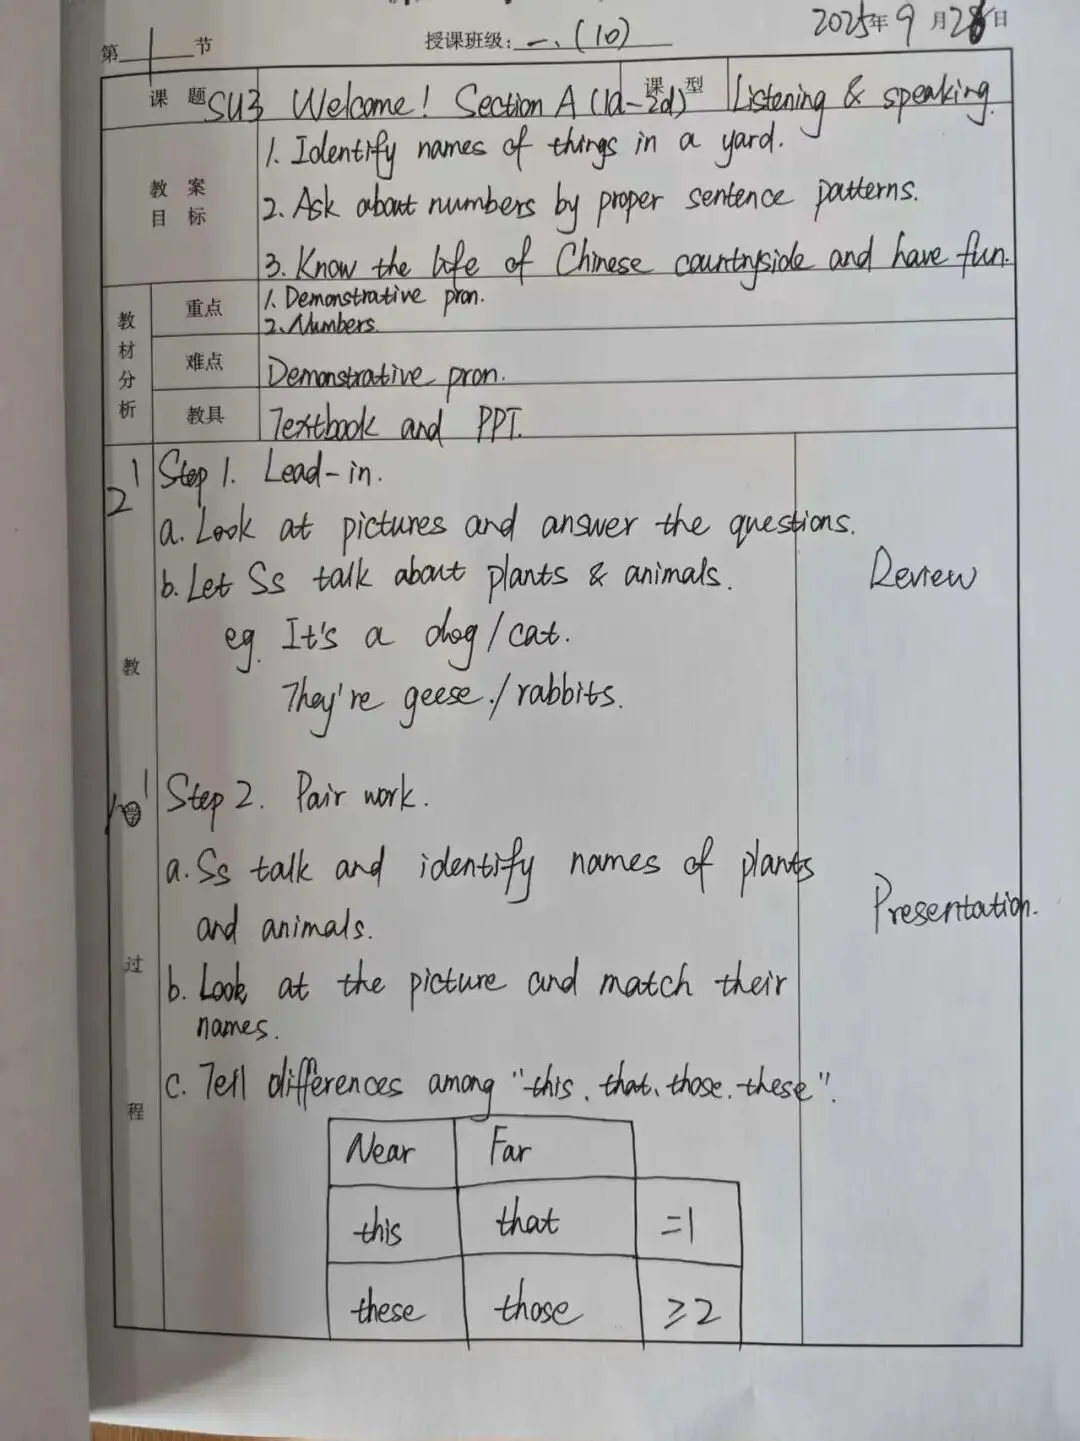 第 1 节
授课班级: 一、(10)
2025年 9 月 28 日
课 题 SU3 Welcome! Section A (1a-2d)
课 型 Listening & speaking.
教 案 目 标
1. Identify names of things in a yard.
2. Ask about numbers by proper sentence patterns.
3. Know the life of Chinese countryside and have fun.
教材分析
重点
1. Demonstrative pron.
2. Numbers.
难点 Demonstrative pron.
教具 Textbook and PPT.
教 学 过 程
2' Step 1. Lead-in.
a. Look at pictures and answer the questions.
b. Let Ss talk about plants & animals.
Review
eg. It's a dog/cat.
They're geese./rabbits.
Step 2. Pair work.
a. Ss talk and identify names of plants
and animals.
Presentation.
b. Look at the picture and match their
names.
c. Tell differences among "this、that、those、these".
Near Far
this that =1
these those ≥2